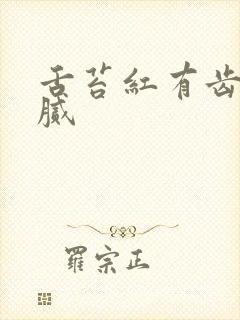 舌苔紅有齿
膩
羅宗正